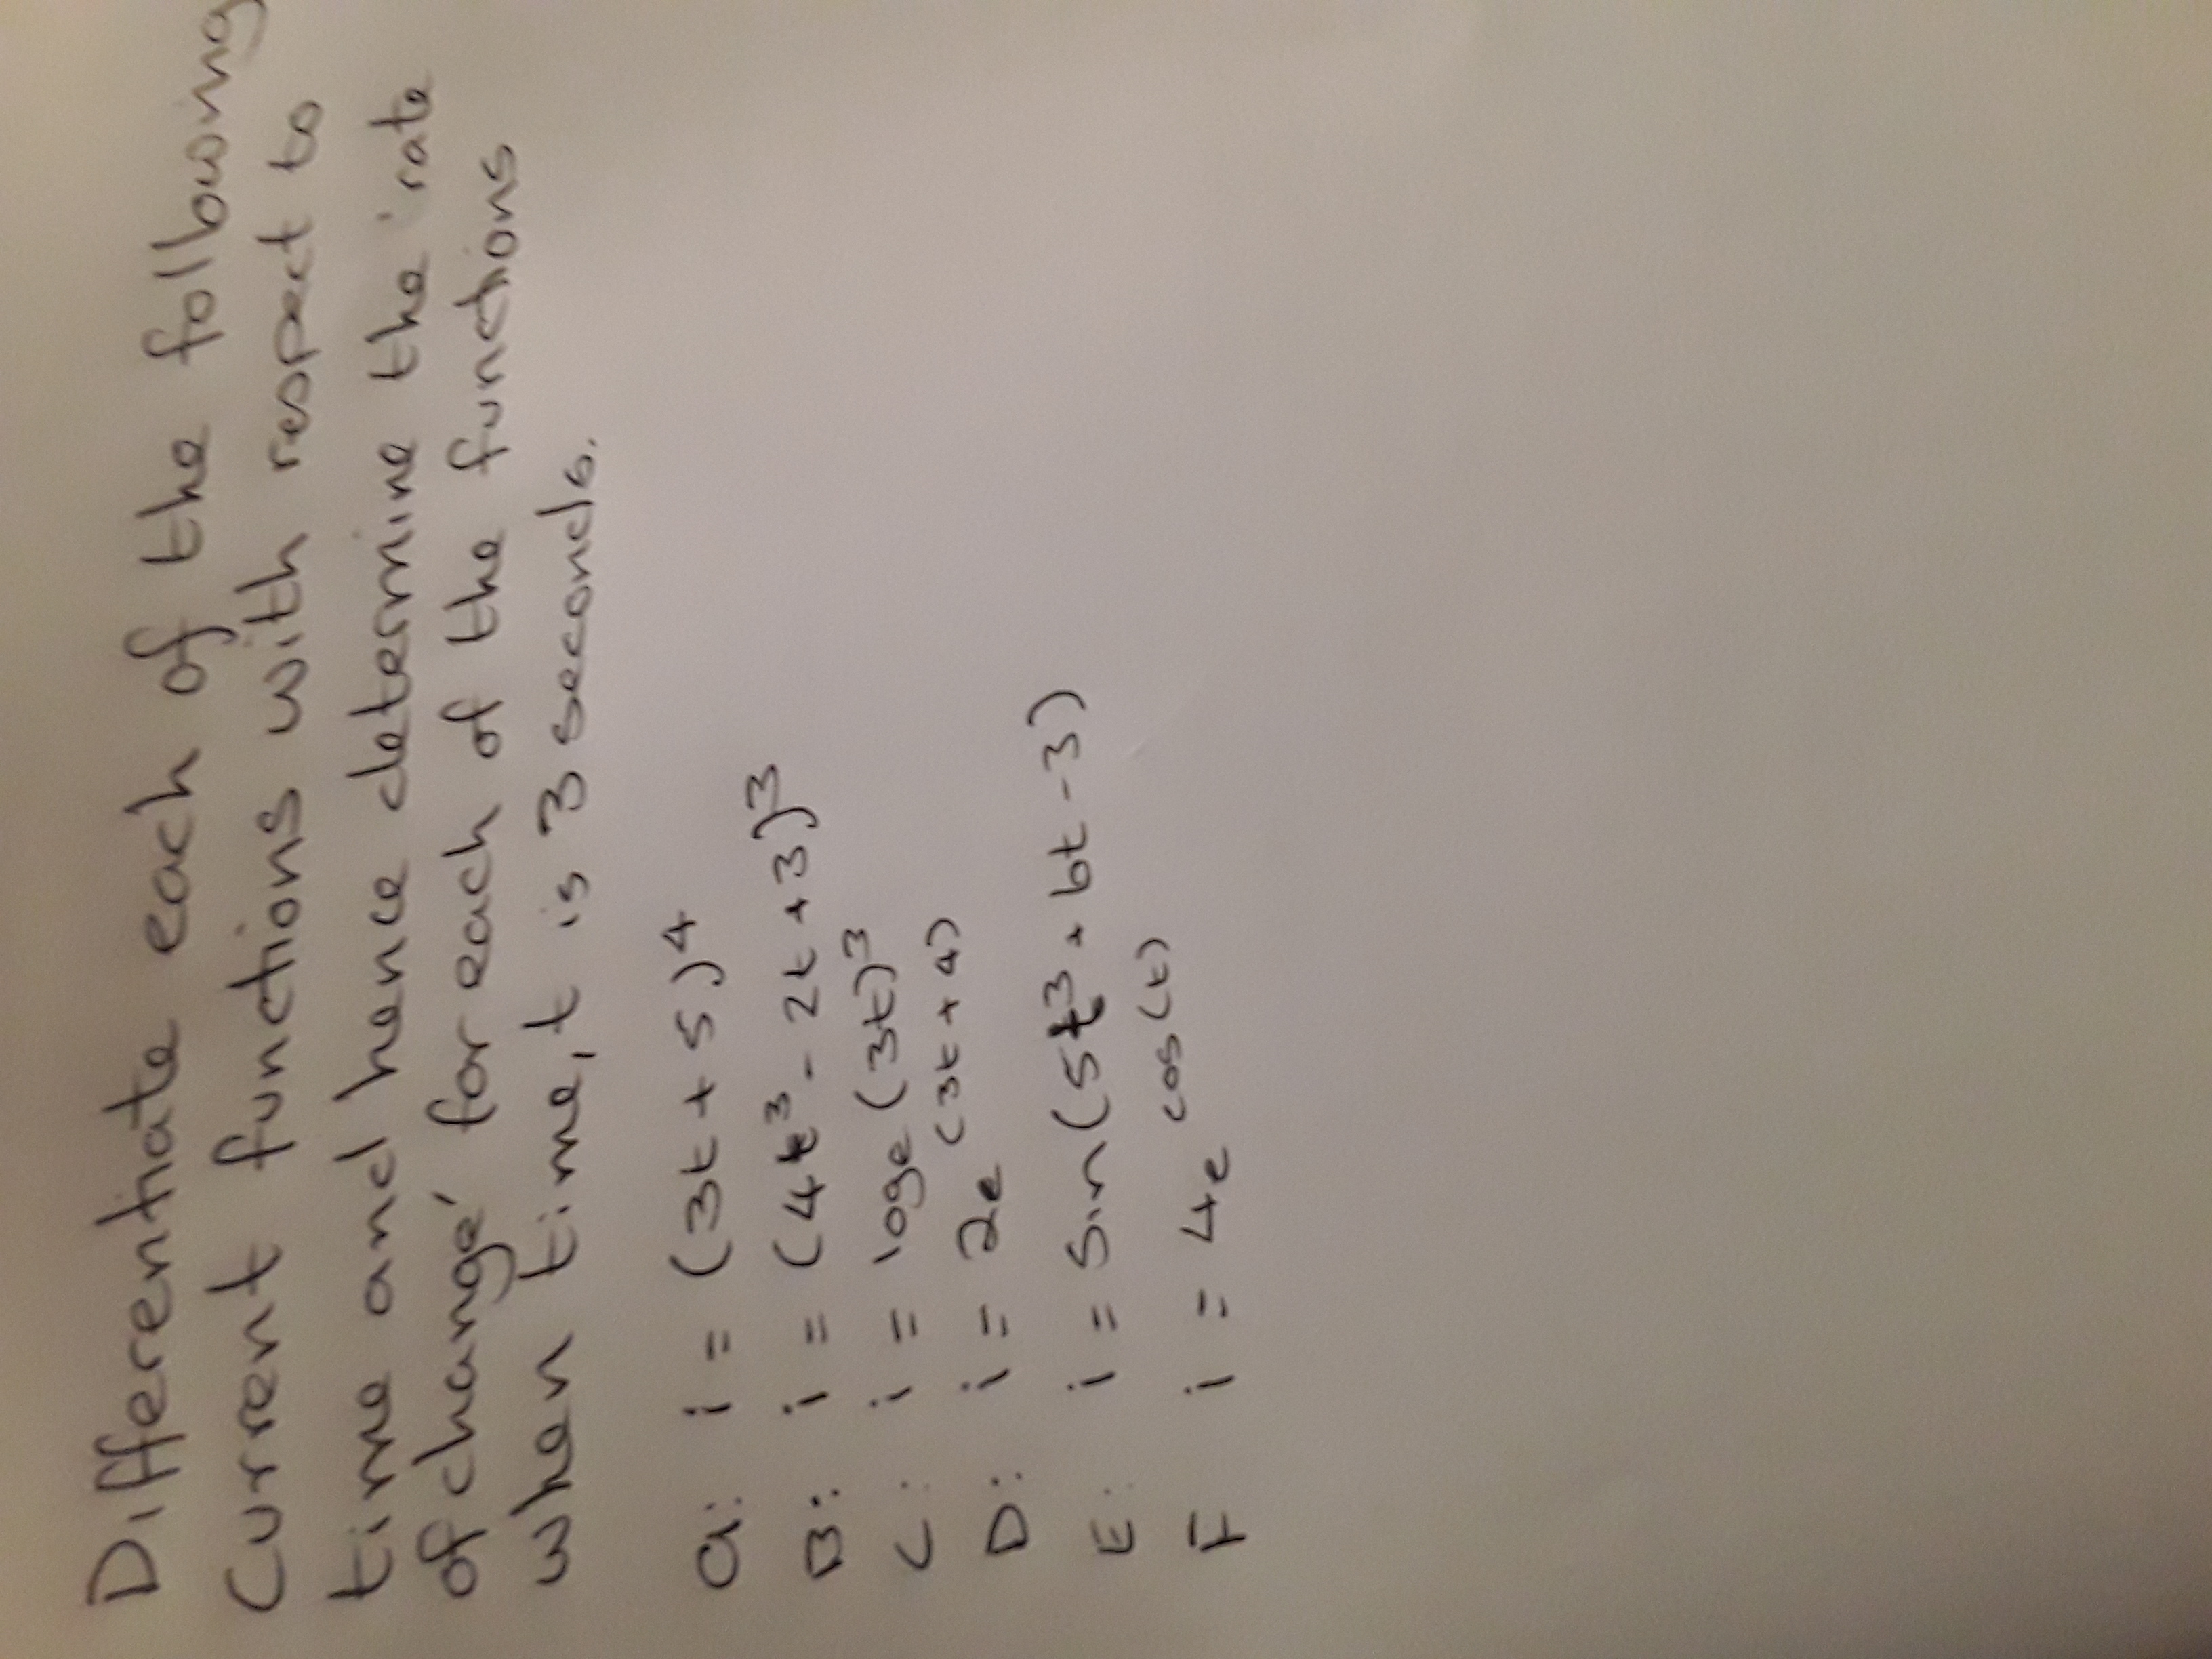 Differentiate each of the following
current functions with respect to
time and hence determine the 'rate
of change' for each of the functions
when time, t is 3 seconds.
a: i = (3t + 5)⁴
B: i = (4t³ - 2t + 3)³
C: i = loge (3t)³
D: i = 2e^(3t + 4)
E: i = sin(5t³ + 6t - 3)
F i = 4e^cos(t)